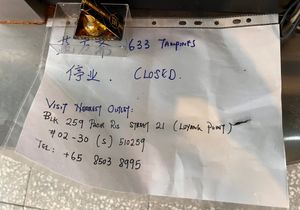 633 TAMPINES
停业. CLOSED.
VISIT NEAREST OUTLET:
BLK 259 PASIR RIS STREET 21 (LOYANG POINT)
#02-30 (S) 510259
TEL: +65 8503 8995